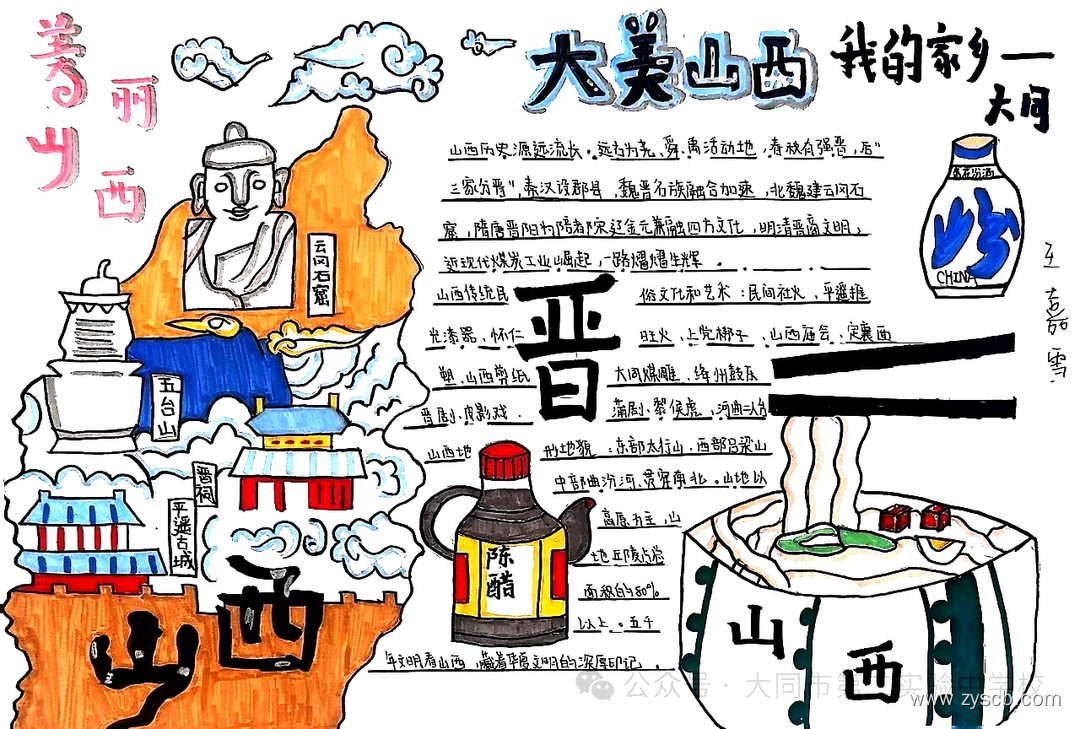 美丽山西
大美山西
我的家乡一
大同
山西历史源远流长。远古为尧、舜、禹活动地,春秋有强晋,后"
三家分晋",秦汉设郡县,魏晋各族融合加速,北魏建云冈石
窟,隋唐晋阳为陪都,宋辽金元兼融四方文化,明清晋商文明,
近现代煤炭工业崛起,一路熠熠生辉。
山西传统民俗文化和艺术:民间社火、平遥推
光漆器、怀仁旺火、上党梆子、山西庙会、定襄面
塑、山西剪纸、大同煤雕、绛州鼓乐
晋剧、皮影戏、蒲剧、黎侯虎、河曲二人台
山西地形地貌:东部太行山、西部吕梁山
中部由汾河贯穿南北。山地以
高原为主,山
地丘陵占总
面积的80%
以上。五千
年文明看山西,藏着华夏文明的深厚印记。
晋
云冈石窟
五台山
晋祠
平遥古城
山西
陈醋
汾
CHINA
王嘉雪
山西
公众号·大同市第 实验中学校
www.zyscb.com